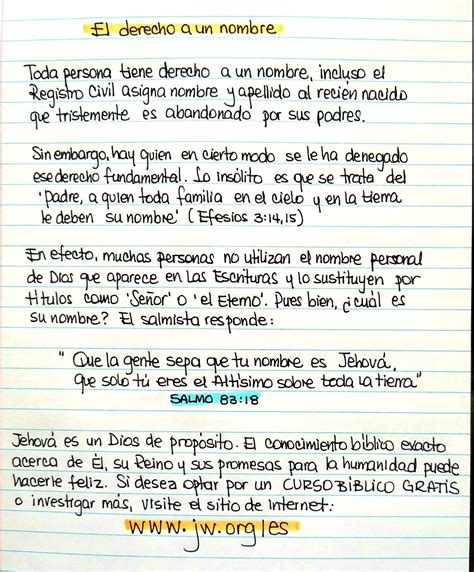 El derecho a un nombre
Toda persona tiene derecho a un nombre, incluso el
Registro Civil asigna nombre y apellido al recién nacido
que tristemente es abandonado por sus padres.
Sin embargo, hay quien en cierto modo se le ha denegado
ese derecho fundamental. Lo insólito es que se trata del
'Padre, a quien toda familia en el cielo y en la tierra
le deben su nombre' (Efesios 3:14,15)
En efecto, muchas personas no utilizan el nombre personal
de Dios que aparece en las Escrituras y lo sustituyen por
títulos como 'Señor' o 'el Eterno'. Pues bien, ¿cuál es
su nombre? El salmista responde:
"Que la gente sepa que tu nombre es Jehová,
que solo tú eres el Altísimo sobre toda la tierra"
SALMO 83:18
Jehová es un Dios de propósito. El conocimiento bíblico exacto
acerca de Él, su Reino y sus promesas para la humanidad puede
hacerle feliz. Si desea optar por un CURSO BÍBLICO GRATIS
o investigar más, visite el sitio de internet:
www.jw.org/es